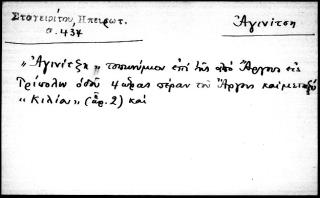 Σταγειρίτου, Ηπειρωτ.
σ. 437
Ἀγινίτση
„ Ἀγινίτζη " τοπωνύμιον ἐπὶ τῆς ἀπὸ Ἄργους εἰς
Τρίπολιν ὁδοῦ 4 ὥρας πέραν τοῦ Ἄργους καὶ μεταξὺ
„ Κιλίου " (ἀρ. 2) καὶ